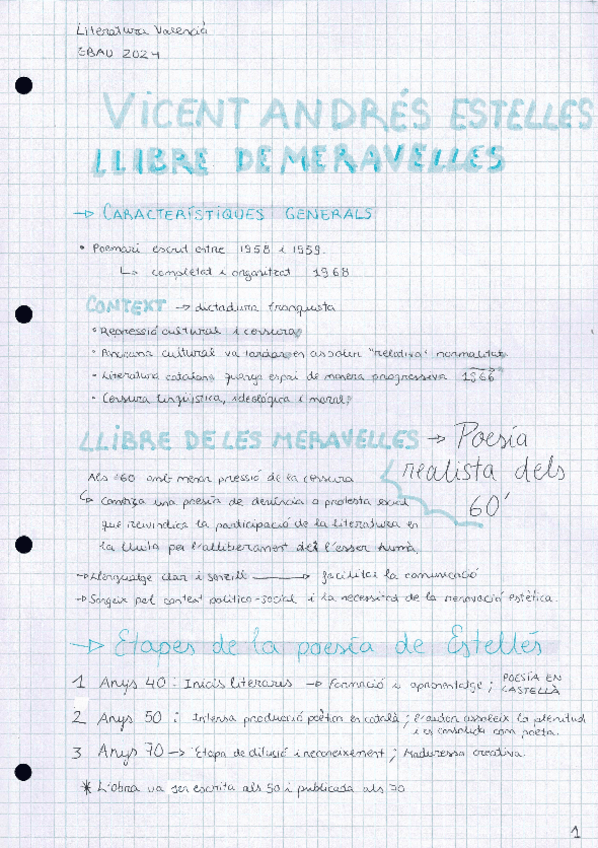 Literatura Valencià
EBAU 2024
VICENT ANDRÉS ESTELLES
LLIBRE DE MERAVELLES
→ CARACTERÍSTIQUES GENERALS
• Poemari escrit entre 1958 i 1959.
↳ completat i organitzat 1968
CONTEXT → dictadura franquista
• Repressió cultural i censura
cultural va tardar en assolir "relativa" normalitat
- Literatura catalana guanya espai de manera progressiva 1966
- Censura lingüística, ideològica i moral
LLIBRE DE LES MERAVELLES → Poesía
realista dels
60'
Als 60 amb menor pressió de la censura
↳ Comença una poesia de denúncia o protesta social
que reivindica la participació de la literatura en
la lluita per l'alliberament del l'esser humà
→ Llenguatge clar i senzill → facilitar la comunicació
→ Sorgeix pel context político-social i la necessitat de la renovació estètica.
→ Etapes de la poesía de Estellés
1 Anys 40: Inicis literaris → Formació i aprenentatge; POESÍA EN CASTELLÀ
2 Anys 50: Intensa producció poètica en català; l'autor assoleix la plenitud
i es consolida com poeta.
3 Anys 70 → Etapa de difusió i reconeixement; Maduressa creativa.
* L'obra va ser escrita als 50 i publicada als 70
1